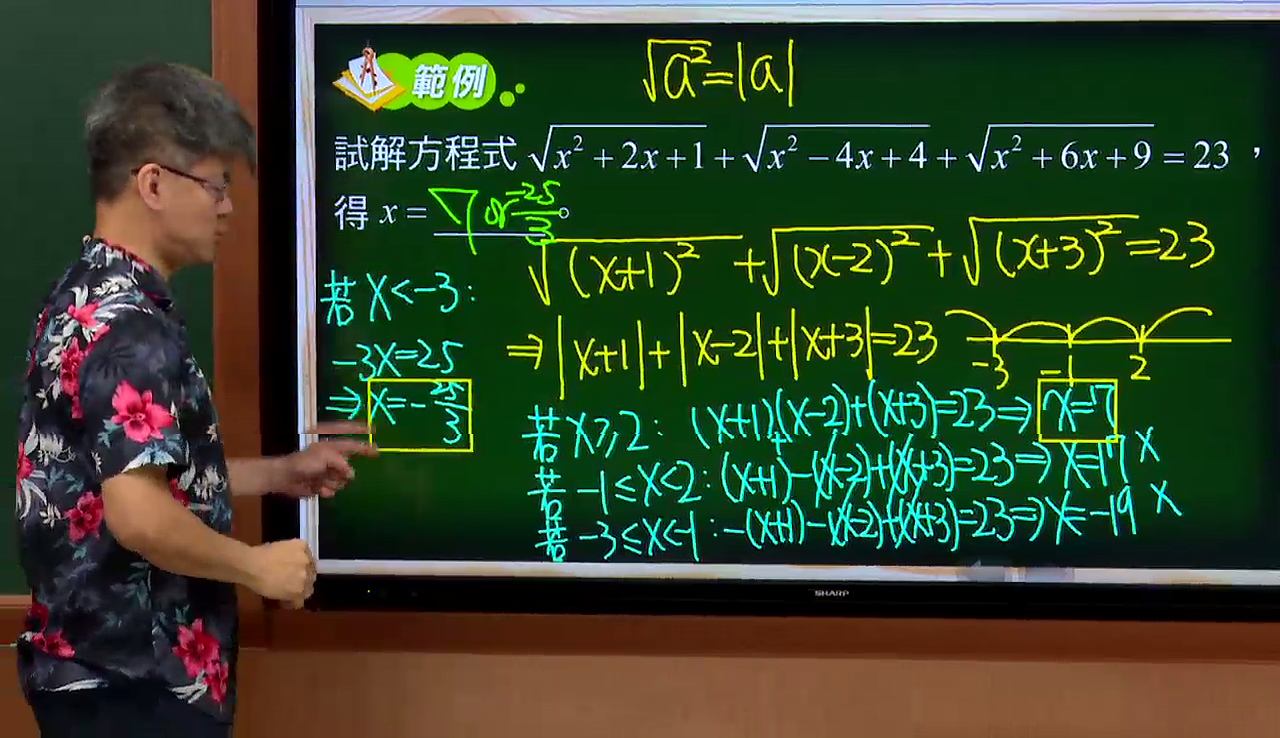 範例
√a² = |a|
試解方程式 √(x² + 2x + 1) + √(x² − 4x + 4) + √(x² + 6x + 9) = 23，
得 x = 7 or −25/3。
√(x+1)² + √(x−2)² + √(x+3)² = 23
⇒ |x+1| + |x−2| + |x+3| = 23
−3 −1 2
若 x ≥ 2 : (x+1)+(x−2)+(x+3)=23 ⇒ x=7
若 −1 ≤ x < 2 : (x+1)−(x−2)+(x+3)=23 ⇒ x=17 ×
若 −3 ≤ x < −1 : −(x+1)−(x−2)+(x+3)=23 ⇒ x=−19 ×
若 x < −3 :
−3x=25
⇒ x=−25/3
SHARP